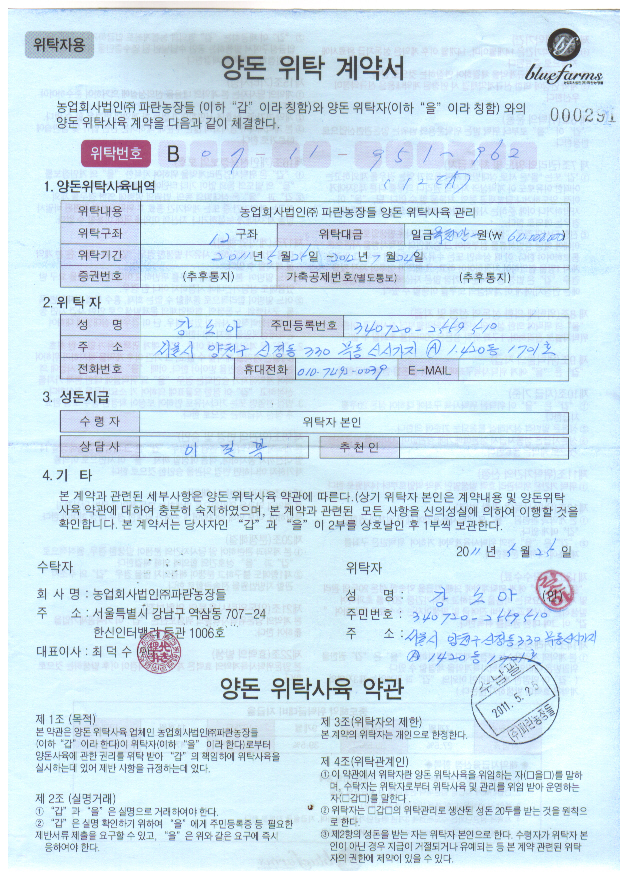 위탁자용
bluefarms
양돈 위탁 계약서
농업회사법인㈜ 파란농장들 (이하 “갑” 이라 칭함)와 양돈 위탁자(이하 “을” 이라 칭함) 와의
양돈 위탁사육 계약을 다음과 같이 체결한다.
000291
위탁번호 B 07-11-951-962
1. 양돈위탁사육내역
위탁내용 농업회사법인㈜ 파란농장들 양돈 위탁사육 관리
위탁구좌 12 구좌 위탁대금 일금 원(₩
위탁기간 2011년 5월 25일 - 2012년 7월 24일
증권번호 (추후통지) 가축공제번호(별도통보) (추후통지)
2. 위 탁 자
성 명 강노아 주민등록번호 340720-2559510
주 소 서울시 양천구 신정동 330 1420동 1701호
전화번호 휴대전화 E-MAIL
3. 성돈지급
수 령 자 위탁자 본인
상 담 사 추 천 인
4. 기 타
본 계약과 관련된 세부사항은 양돈 위탁사육 약관에 따른다.(상기 위탁자 본인은 계약내용 및 양돈위탁
사육 약관에 대하여 충분히 숙지하였으며, 본 계약과 관련된 모든 사항을 신의성실에 의하여 이행할 것을
확인합니다. 본 계약서는 당사자인 “갑” 과 “을” 이 2부를 상호날인 후 1부씩 보관한다.
2011년 5월 25일
수탁자
회 사 명 : 농업회사법인㈜파란농장들
주 소 : 서울특별시 강남구 역삼동 707-24
한신인터밸리 동관 1006호
대표이사 : 최 덕 수
위탁자
성 명 : 강노아 (인)
주민번호 : 340720-2559510
주 소 : 서울시 양천구 신정동 330
1420동 1701호
2011. 5. 25
㈜파란농장들
양돈 위탁사육 약관
제 1조 (목적)
본 약관은 양돈 위탁사육 업체인 농업회사법인㈜파란농장들
(이하 “갑” 이라 한다)이 위탁자(이하 “을” 이라 한다)로부터
양돈사육에 관한 권리를 위탁 받아 “갑” 의 책임하에 위탁사육을
실시하는데 있어 제반 사항을 규정하는데 있다.
제 2조 (실명거래)
① “갑” 과 “을” 은 실명으로 거래하여야 한다.
② “갑” 은 실명 확인하기 위하여 “을” 에게 주민등록증 등 필요한
제반서류 제출을 요구할 수 있고, “을” 은 위와 같은 요구에 즉시
응하여야 한다.
제 3조(위탁자의 제한)
본 계약의 위탁자는 개인으로 한정한다.
제 4조(위탁관계인)
① 이 약관에서 위탁자란 양돈 위탁사육을 위임하는 자(□을□)를 말하
며, 수탁자는 위탁자로부터 위탁사육 및 관리를 위임 받아 운영하는
자(□갑□)를 말한다.
② 위탁자는 □갑□의 위탁관리로 생산된 성돈 20두를 받는 것을 원칙으
로 한다.
③ 제2항의 성돈을 받는 자는 위탁자 본인으로 한다. 수령자가 위탁자 본
인이 아닌 경우 지급이 거절되거나 유예되는 등 본 계약 관련된 위탁
자의 권한에 제약이 있을 수 있다.